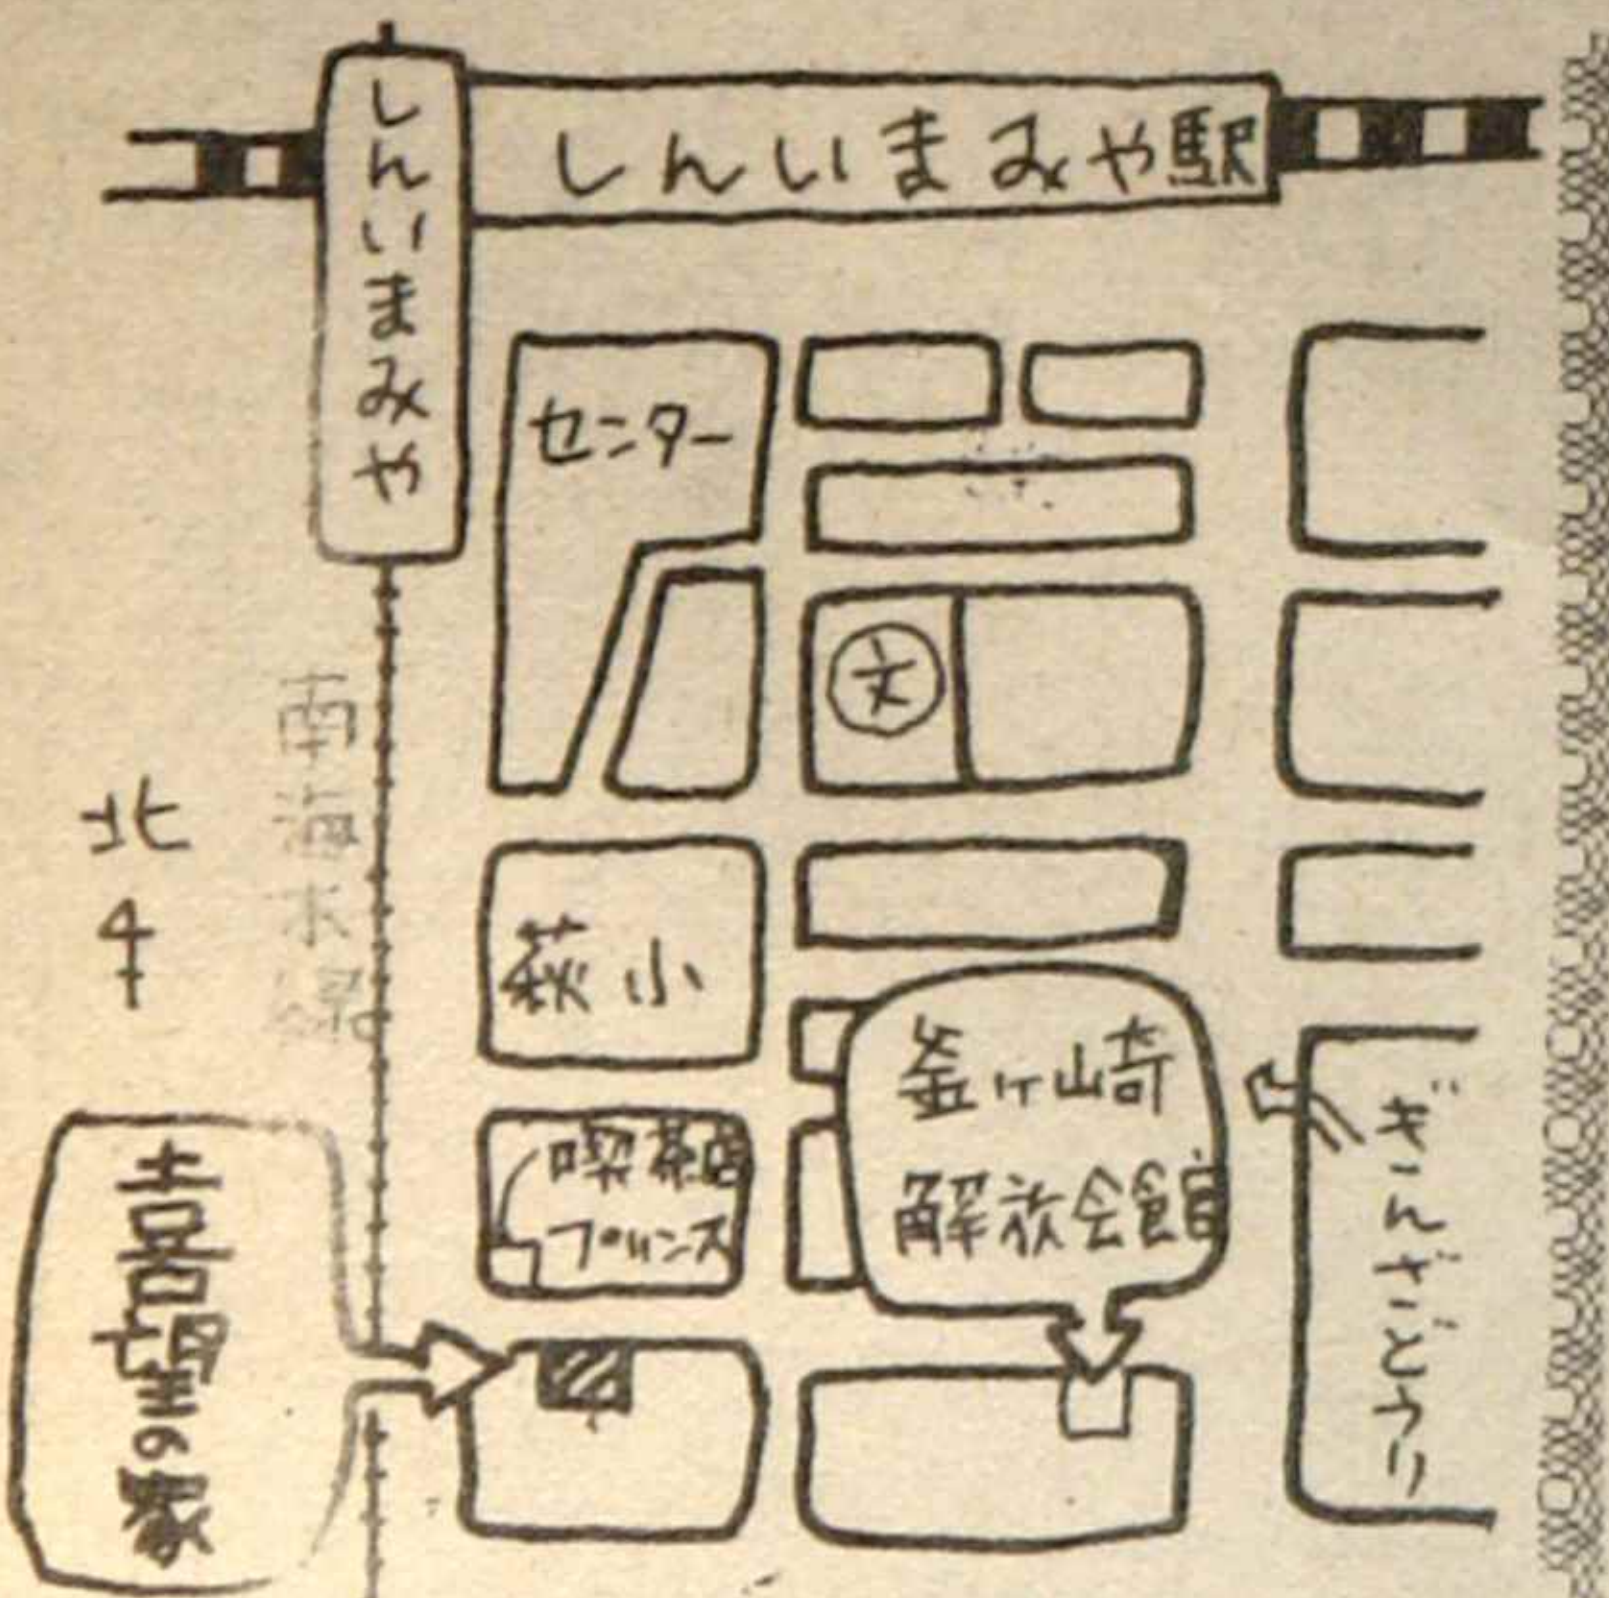 しんいまみや
しんいまみや駅
センター
文
北
南海本線
萩小
釜ヶ崎
解放会館
喫茶店
プリンス
ぎんざどうり
喜望の家